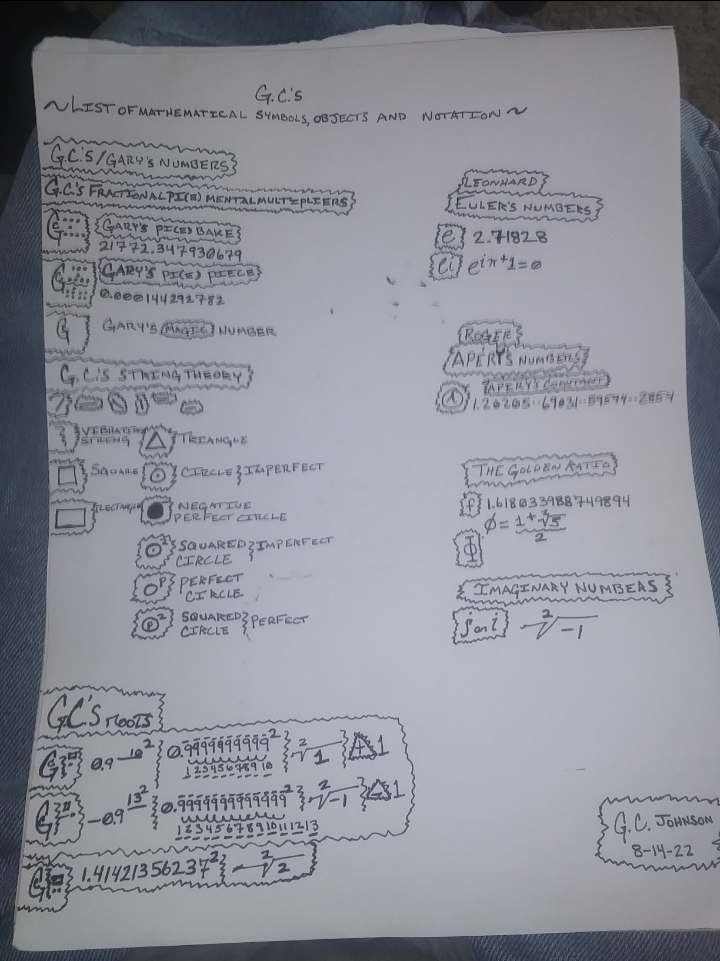 G.C.'s
~LIST OF MATHEMATICAL SYMBOLS, OBJECTS AND NOTATION~
G.C.'S/GARY'S NUMBERS
G.C.'S FRACTIONAL PI(E) MENTAL MULTIPLIERS
GARY'S PI(E) BAKE
21772.347930679
GARY'S PI(E) PIECE
0.000144292782
G GARY'S MAGIC NUMBER
G.C.'S STRING THEORY
VIBRATING STRING
TRIANGLE
SQUARE
CIRCLE}IMPERFECT
RECTANGLE
NEGATIVE
PERFECT CIRCLE
2 SQUARED}IMPERFECT
CIRCLE
P PERFECT
CIRCLE
P2 SQUARED}PERFECT
CIRCLE
LEONHARD
EULER'S NUMBERS
e 2.71828
ei e^iπ+1=0
ROGER
APERY'S NUMBERS
APERY'S CONSTANT
A
THE GOLDEN RATIO
f 1.618033988749894
Φ φ=1+²√5/2
IMAGINARY NUMBERS
²√-1
G.C.'S ROOTS
G 0.9 10² } 0.9999999999² } ²√1 } 1
1 2 3 4 5 6 7 8 9 10
G -0.9 13² } 0.9999999999999² } ²√-1 } 1
1 2 3 4 5 6 7 8 9 10 11 12 13
G 1.41421356237² } ²√2
G.C. JOHNSON
8-14-22